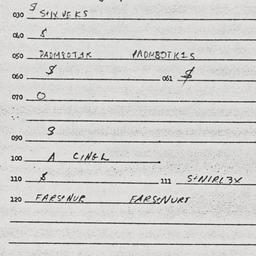 030 S+IX VEKS
040 $
050 PADMBOTIK PADMBOTKIS
060 $ 061 $
070 O
090 3
100 A CINGL
110 $ 111 S+NIRL3X
120 FARS+NUR FARS+NURT